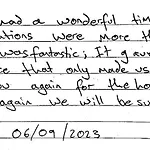 had a wonderful tim
ations were more th
was fantastic; It g
ce that only made us
ow again for the ho
again we will be su
06/09/2023